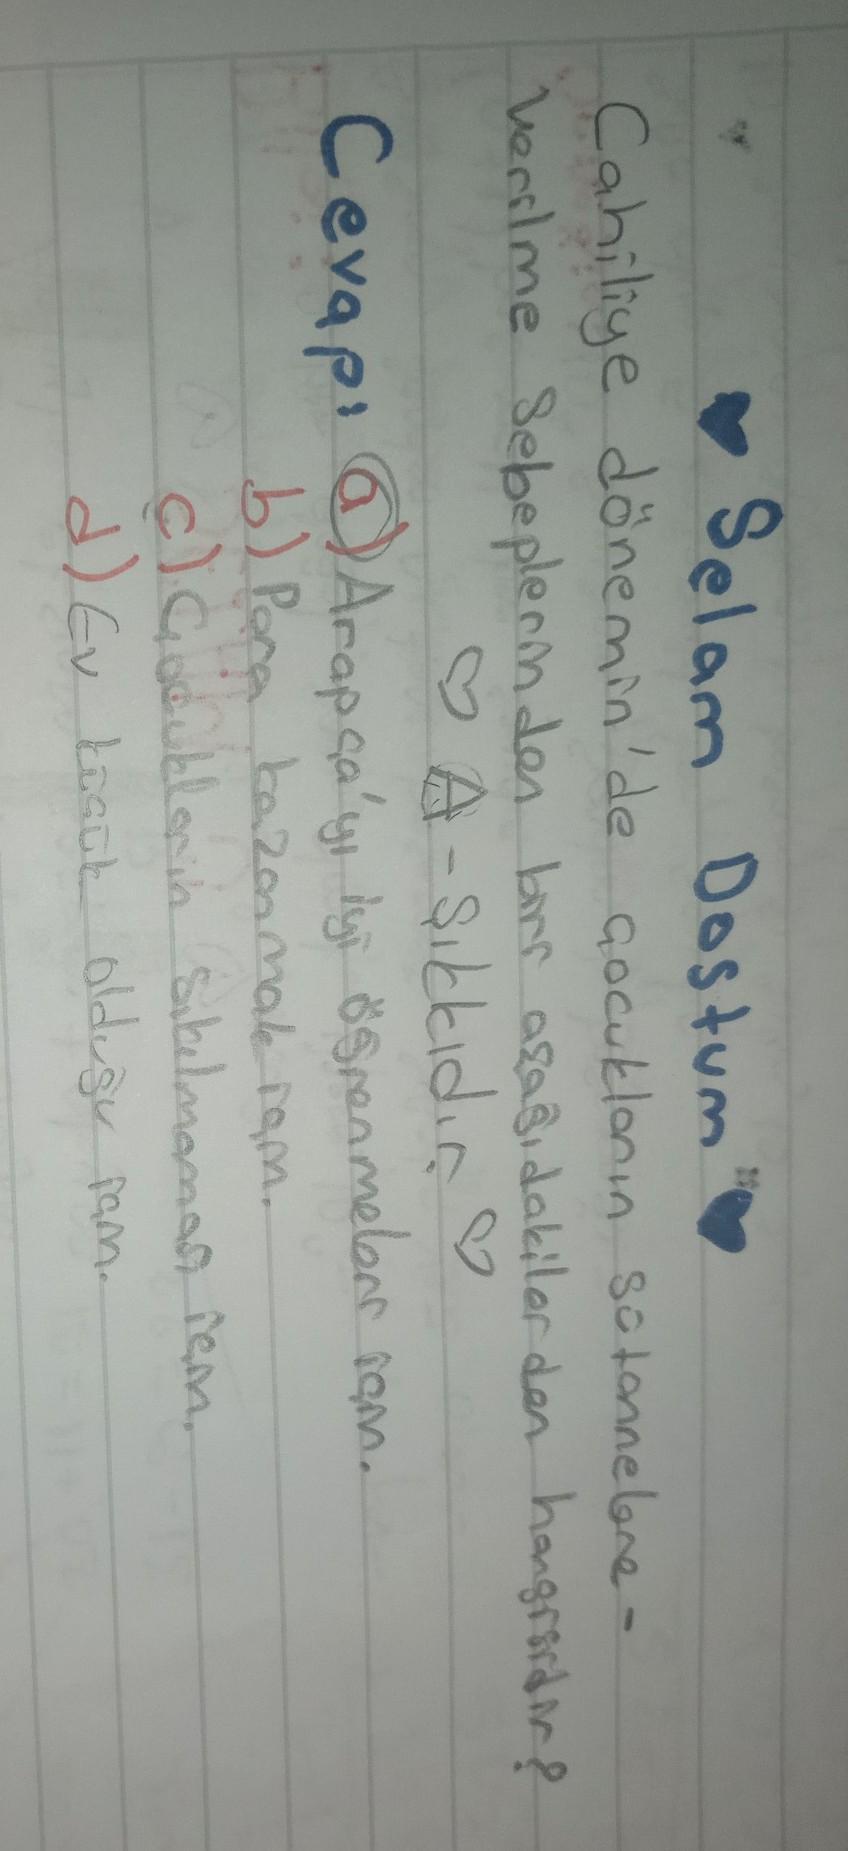 ♥ Selam Dostum ♥
Cahiliye dönemin'de çocukların sütannelere -
verilme sebeplerinden biri aşağıdakilerden hangisidir?
♡ A - Şıkkıdır. ♡
Cevap: a) Arapça'yı iyi öğrenmeleri için.
b) Para kazanmak için.
c) Çocukların sıkılmaması için.
d) Ev küçük olduğu için.